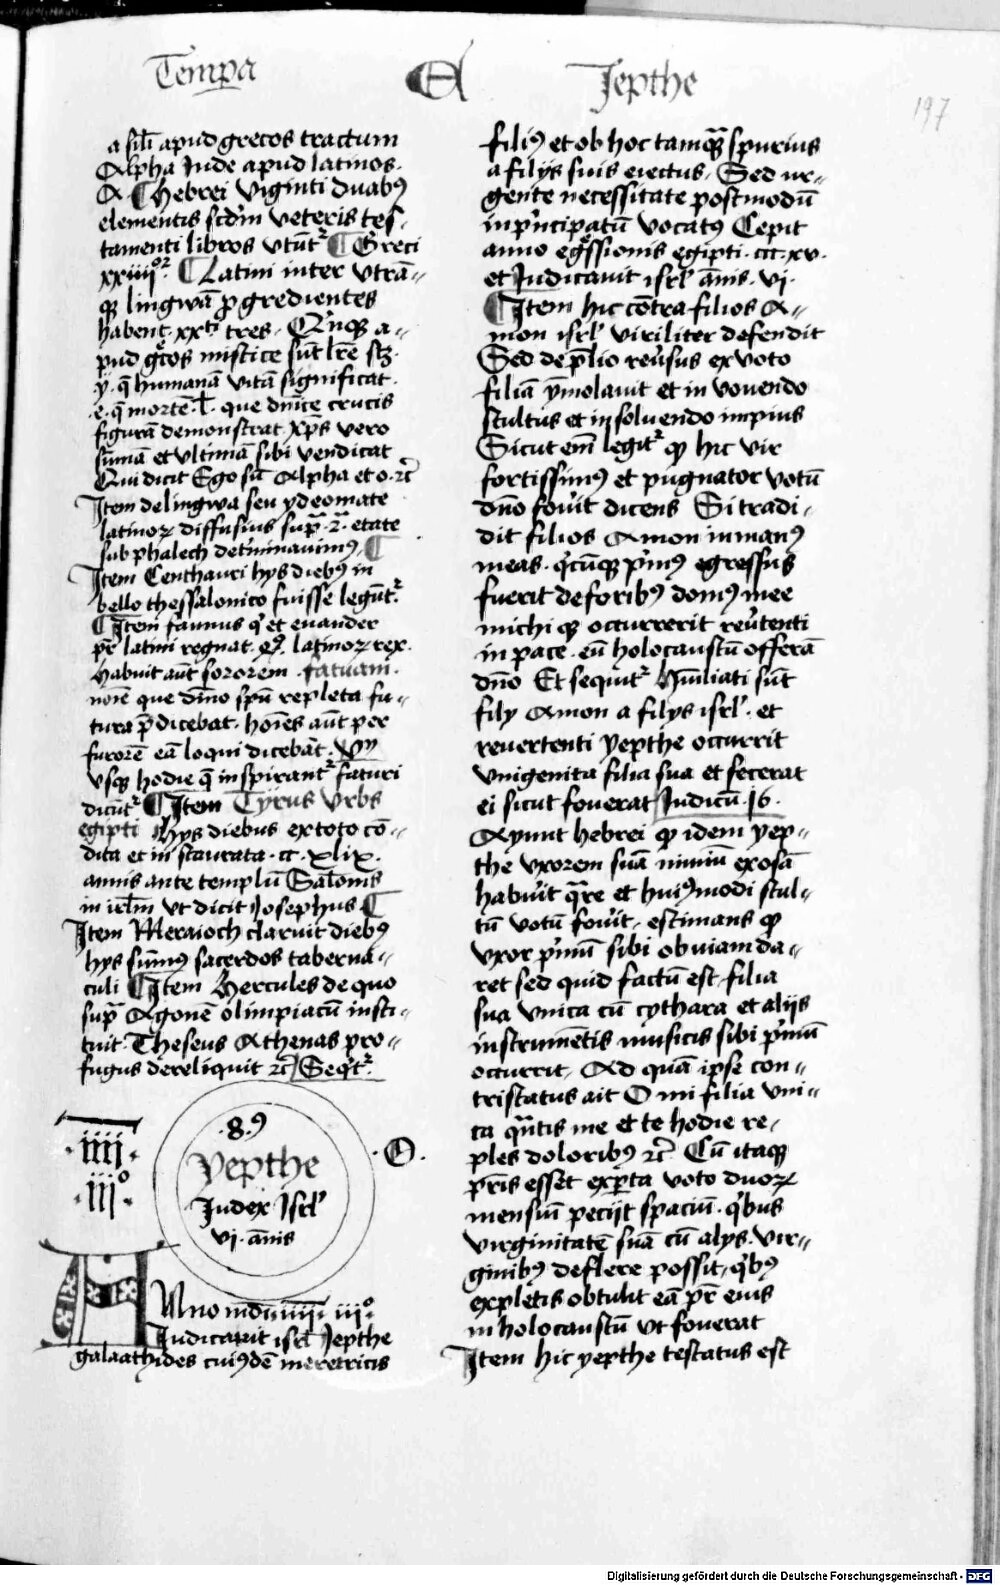 Tempa
A
Jepthe
197
a sili apud grecos tractum
Alpha Jude apud latinos.
A. ¶ Hebrei Viginti duabꝰ
elementis scdm veteris tes-
tamenti libros vtūtᷣ ¶ Greci
xxiiiioꝝ ¶ Latini inter vtrā-
qꝫ lingwā ꝓgredientes
habent xxti tres. Quinqꝫ a-
pud gͣcos mistice sūt lrē scꝫ.
.y. q̄ humanā vitā significat.
.e. q̄ mortē.t. que dnice crucis
figurā demonstrat xp̄s vero
sūmā et vltimā sibi vendicat
Qui dicit Ego sū Alpha et o. ꝛc̄
Item de lingwa seu ydeomate
latinoꝝ diffusius supᷓ .2.ᷓ etate
sub phalech det'minauimꝰ. ¶
Item Centhauri hys diebꝰ in
bello thessalonico fuisse legūtᷣ.
¶ Item faunus qͥ et euander
pr̄ latini regnat. latinoꝝ rex.
habuit aūt sororem fatuam.
noīe que dīno spū repleta fu-
tura p̄dicebat. hoīes aūt per
furorē eā loqui dicebāt.
vsqꝫ hodie q̄ inspirantᷣ faturi
dicūtᷣ ¶ Item Tyrus vrbs
egipti hys diebus ex toto cō-
dita et in staurata .cc.xlix.
annis ante templū Salomīs
in irlm̄ vt dicit Josephus ¶
Item Meraioch claruit diebꝰ
hys sūmꝰ sacerdos taberna-
culi ¶ Item Hercules de quo
supᷓ Agonē olimpiacū insti-
tuit. Theseus Athenas pro-
fugus dereliquit ꝛc̄ Seqͥtᷣ.
.iiii.
.iijo.
.8.9
Yepthe
Judex Isrl'
vi. annis
.O.
Anno
Iudicauit isrl' Jepthe
galaathides cuiꝰdē meretricis
filiꝰ et ob hoc tamqᷓꝫ spurius
a filijs suis eiectus. Sed vr-
gente necessitate postmodū
in pͥncipatū vocatꝰ Cepit
anno egͤssionis egipti .ccc.xv.
et Judicauit isrl' ānis .vi.
¶ Item hic cōtra filios A-
mon isrl' viriliter defendit
Sed de p̄lio reu'sus ex voto
filiā ymolauit et in vouendo
stultus et in soluendo impius
Sicut em̄ legitᷣ qꝫ hic vir
fortissimꝰ et pugnator votū
dn̄o fouit dicens Si tradi-
dit filios Amon in manꝰ
meas. qͥcūqꝫ pͥmꝰ egressus
fuerit de foribꝰ domꝰ mee
michi qꝫ occurrerit reu'tenti
in pace. eū holocaustū offerā
dn̄o Et sequitᷣ Hūiliati sūt
filij Amon a filys isrl'. et
reuertenti Yepthe occurrit
vnigenita filia sua et fecerat
ei sicut fouerat Judicū .16.
Ayunt hebrei qꝫ idem yep-
the vxorem suā nimiū exosā
habuit qᷓre et huiꝰmodi stul-
tū votū fouit. estimans qꝫ
vxor pͥmū sibi obuiam da-
ret sed quid factū est filia
sua vnica cū cythara et alijs
instrumētis musicis sibi pͥmū
occurrit. Ad quā ipse con-
tristatus ait O mi filia vni-
ca qᷓntis me et te hodie re-
ples doloribꝰ ꝛc̄ Cū itaqꝫ
pr̄is esset exp̱ta voto duoꝝ
mensiū pecijt spaciū. qͥbus
virginitatē suā cū alys vir-
ginibꝰ deflere possit. qͥbꝰ
expletis obtulit eā pr̄ eius
in holocaustū vt fouerat
Item hic yepthe testatus est
Digitalisierung gefördert durch die Deutsche Forschungsgemeinschaft - DFG